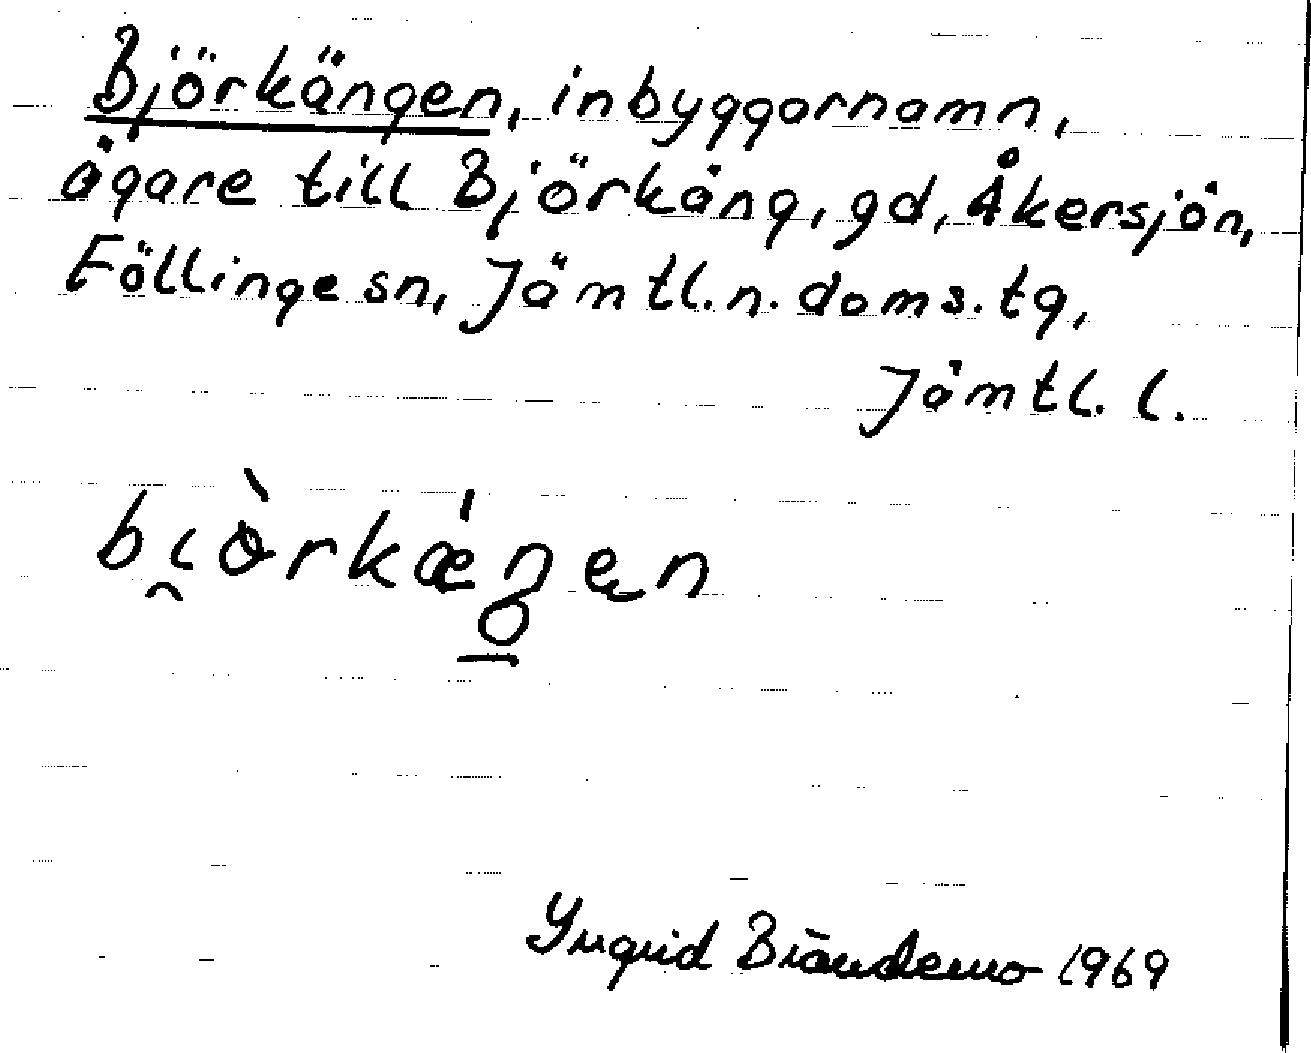 Björkängen, inbyggarnamn,
ägare till Björkäng, gd, Åkersjön,
Föllinge sn, Jämtl. n. doms. tg,
Jämtl. l.
bi̯òrkǽŋen
Yngrid Brändemo 1969